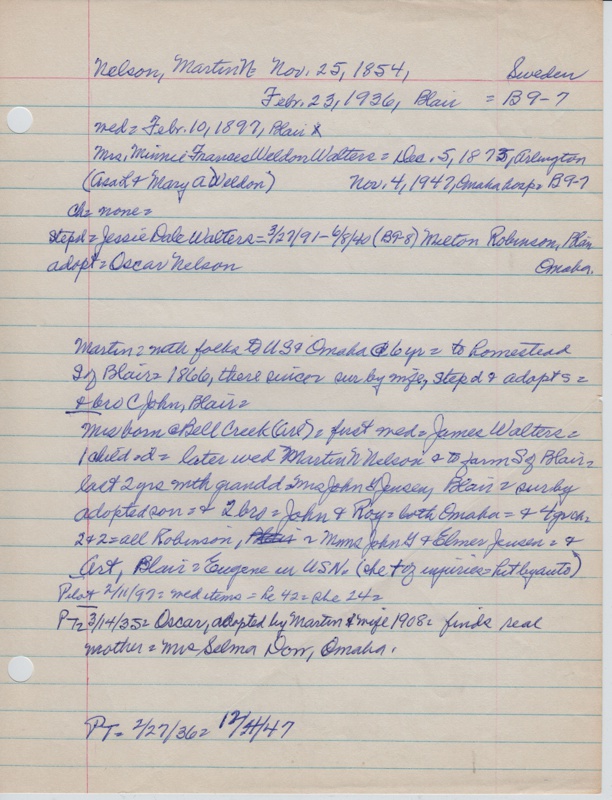 Nelson, Martin N. Nov. 25, 1854, Sweden
Febr. 23, 1936, Blair = B9-7
wed = Febr. 10, 1897, Blair
Mrs. Minnie Frances Weldon Walters = Dec. 5, 1873, Arlington
(Asa L & Mary A Weldon) Nov. 4, 1947, Omaha hosp = B9-7
ch = none =
stepd = Jessie Dale Walters = 3/27/91 - 6/8/40 (B9-8) Milton Robinson, Blair
adopt = Oscar Nelson Omaha.
Martin = with folks to US & Omaha @ 6 yr = to homestead
S of Blair = 1866, there since = sur by wife, stepd & adopt s =
& bro C John, Blair =
Mrs born @ Bell Creek (Arl) = first wed = James Walters =
1 child = d = later wed Martin N Nelson & to farm S of Blair =
last 2 yrs with grandd = Mrs John G Jensen, Blair = sur by
adopted son = & 2 bro = John & Roy = both Omaha = & 4 grch =
2 & 2 = all Robinson, = Mmes John G & Elmer Jensen = &
Art, Blair = Eugene in USN. (she + of injuries = hit by auto)
Pilot 2/11/97 = wed items = he 42 = she 24 =
PT = 3/14/35 = Oscar, adopted by Martin & wife 1908 = finds real
mother = Mrs Selma Dow, Omaha.
PT = 2/27/36 = 12/4/47